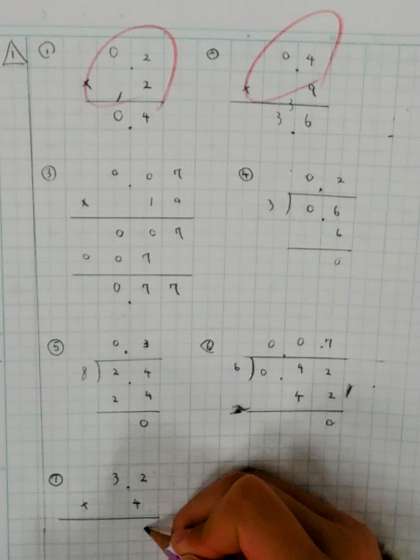 1
① 0.2
× 2
0.4
② 0.4
× 9
3
3.6
③ 0.07
× 1
007
007
0.77
④ 0.2
3)0.6
6
0
⑤ 0.3
8)2.4
24
0
⑥ 0.07
6)0.42
42
0
⑦ 3.2
× 4